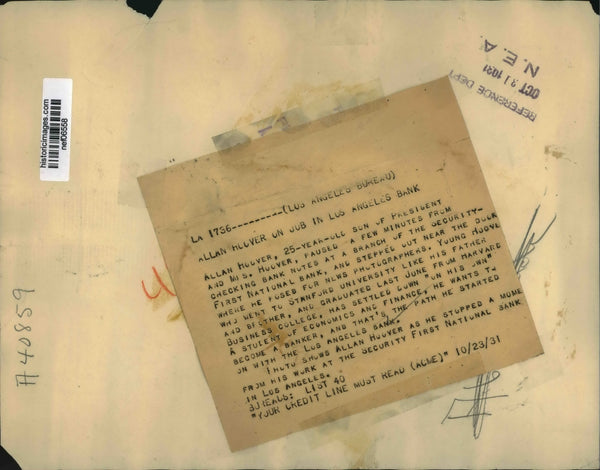 historicimages.com
nef06558
REFERENCE DEPT
OCT 31 1931
N.E.A.
LA 1736---------(LOS ANGELES BUREAU)
ALLAN HOOVER ON JOB IN LOS ANGELES BANK
ALLAN HOOVER, 25-YEAR-OLD SON OF PRESIDENT
AND MRS. HOOVER, PAUSED A FEW MINUTES FROM
CHECKING BANK NOTES AT A BRANCH OF THE SECURITY-
FIRST NATIONAL BANK, AND STEPPED OUT NEAR THE DOOR
WHERE HE POSED FOR NEWS PHOTOGRAPHERS. YOUNG HOOVER
WHO WENT TO STANFORD UNIVERSITY LIKE HIS FATHER
AND BROTHER, AND GRADUATED LAST JUNE FROM HARVARD
BUSINESS COLLEGE, HAS SETTLED DOWN "ON HIS OWN"
A STUDENT OF ECONOMICS AND FINANCE, HE WANTS TO
BECOME A BANKER, AND THAT'S THE PATH HE STARTED
ON WITH THE LOS ANGELES BANK.
PHOTO SHOWS ALLAN HOOVER AS HE STOPPED A MOME
FROM HIS WORK AT THE SECURITY FIRST NATIONAL BANK
IN LOS ANGELES.
BUREAUS: LIST 40
"YOUR CREDIT LINE MUST READ (ACME)" 10/23/31
A40859